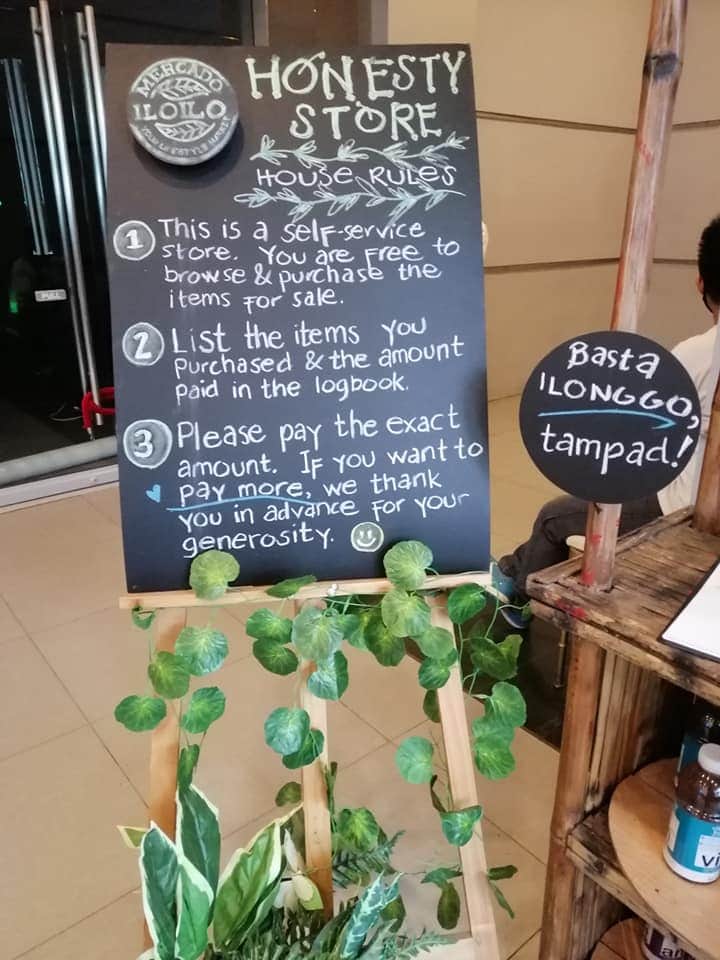 MERCADO
ILOILO
YOUR LIFESTYLE MARKET
HONESTY
STORE
HOUSE RULES
1 This is a self-service
store. You are free to
browse & purchase the
items for sale.
2 List the items you
purchased & the amount
paid in the logbook.
3 Please pay the exact
amount. If you want to
pay more, we thank
you in advance for your
generosity.
Basta
ILONGGO,
tampad!
PULL
vi